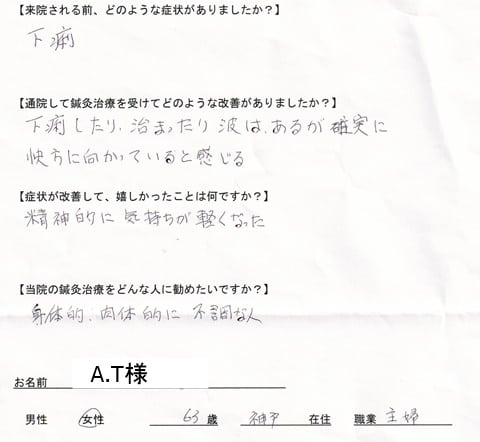 【来院される前、どのような症状がありましたか？】
下痢
【通院して鍼灸治療を受けてどのような改善がありましたか？】
下痢したり、治まったり波は、あるが確実に
快方に向かっていると感じる
【症状が改善して、嬉しかったことは何ですか？】
精神的に気持ちが軽くなった
【当院の鍼灸治療をどんな人に勧めたいですか？】
身体的、肉体的に不調な人
お名前 A.T様
男性 女性 63歳 神戸 在住 職業 主婦